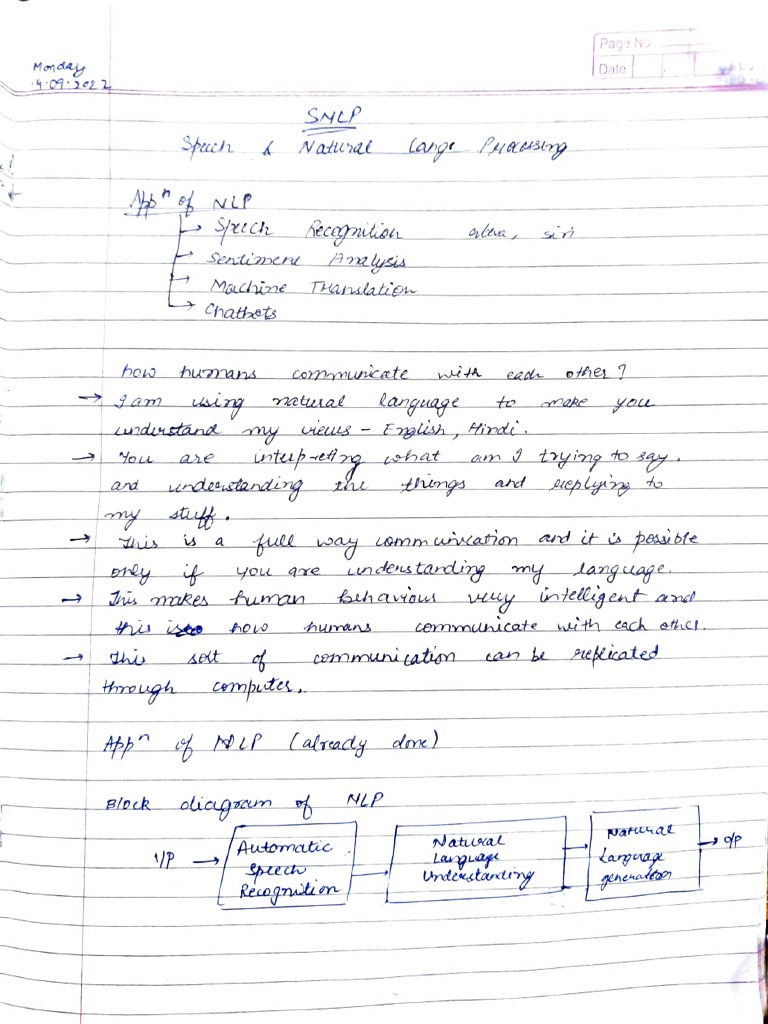 Page No
Date
Monday
4.09.2022
SNLP
Speech & Natural Lange Processing
Appⁿ of NLP
→ Speech Recognition alexa, siri
→ Sentiment Analysis
→ Machine Translation
→ Chatbots
how humans communicate with each other?
→ I am using natural language to make you
understand my views - English, Hindi.
→ You are interpreting what am I trying to say.
and understanding the things and replying to
my stuff.
→ This is a full way communication and it is possible
only if you are understanding my language.
→ This makes human behaviour very intelligent and
this is how humans communicate with each other.
→ This sort of communication can be replicated
through computer.
Appⁿ of NLP (already done)
Block diagram of NLP
I/P → Automatic Speech Recognition → Natural Language Understanding → Natural Language generation → O/P